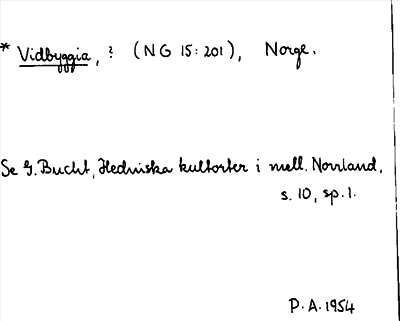 * Vidbyggia, ? (NG 15: 201), Norge.
Se G. Bucht, Hedniska kultorter i mell. Norrland,
s. 10, sp. 1.
P. A. 1954